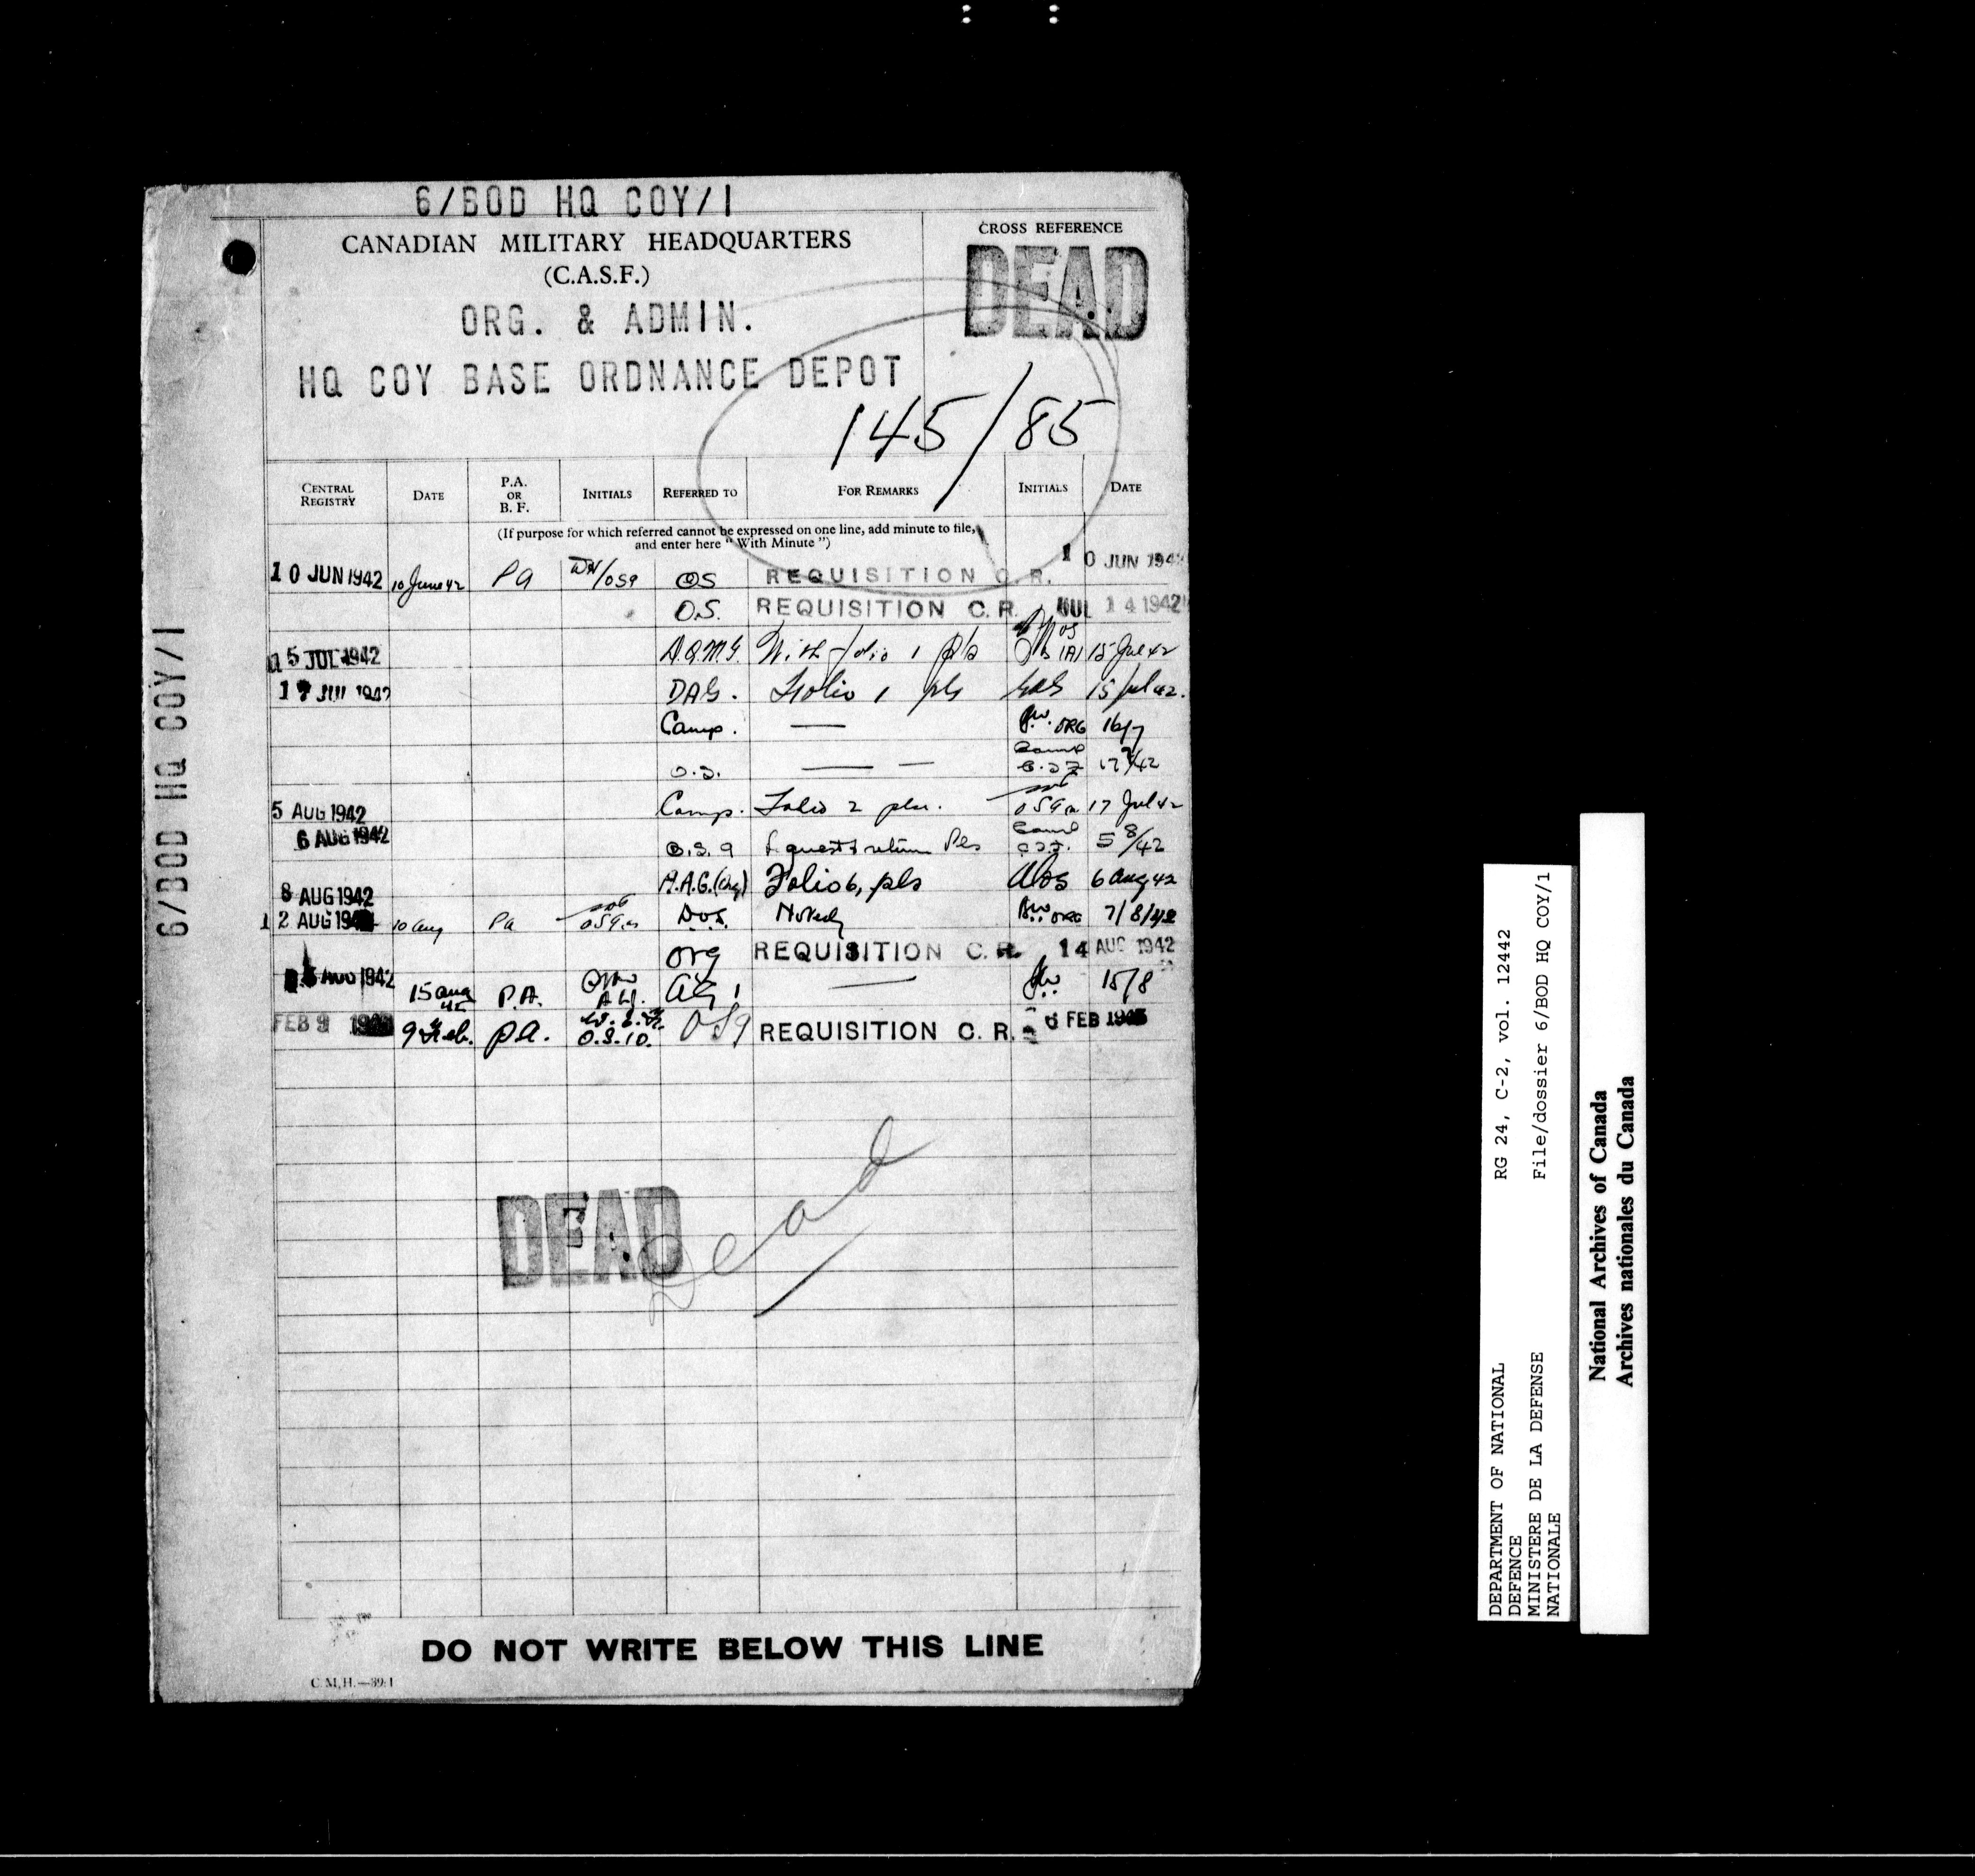 6/BOD HQ COY/1
CANADIAN MILITARY HEADQUARTERS
(C.A.S.F.)
ORG. & ADMIN.
HQ COY BASE ORDNANCE DEPOT
CROSS REFERENCE
DEAD
145/85
CENTRAL REGISTRY DATE P.A. OR B. F. INITIALS REFERRED TO FOR REMARKS INITIALS DATE
(If purpose for which referred cannot be expressed on one line, add minute to file,
and enter here "With Minute")
10 JUN 1942 10 June 42 PA /OS9 OS REQUISITION C. R. 10 JUN 194
O.S. REQUISITION C. R. JUL 14 1942
5 JUL 1942 D.Q.M.G. With folio 1 pls 15 Jul 42
17 JUL 1942 DAG. Folio 1 pls 15 Jul 42.
Camp. — ORG 16/7
O.S. — — 17/7/42
5 AUG 1942 Camp. Folio 2 pls. OS9a 17 Jul 42
6 AUG 1942 O.S. 9 return Pls 5/8/42
8 AUG 1942 A.A.G.(Org) Folio 6, pls 6 Aug 42
12 AUG 194 10 Aug PA OS9a D.O.S. Noted ORG 7/8/42
Org REQUISITION C. R. 14 AUG 1942
AUG 1942 15 Aug P.A. AG 1 — 15/8
FEB 9 9 Feb. P.A. O.S.10. OS9 REQUISITION C. R. 6 FEB 194
DEAD
Dead
DO NOT WRITE BELOW THIS LINE
C.M.H.—39/1
6/BOD HQ COY/1
DEPARTMENT OF NATIONAL RG 24, C-2, vol. 12442
DEFENCE
MINISTERE DE LA DEFENSE File/dossier 6/BOD HQ COY/1
NATIONALE
National Archives of Canada
Archives nationales du Canada